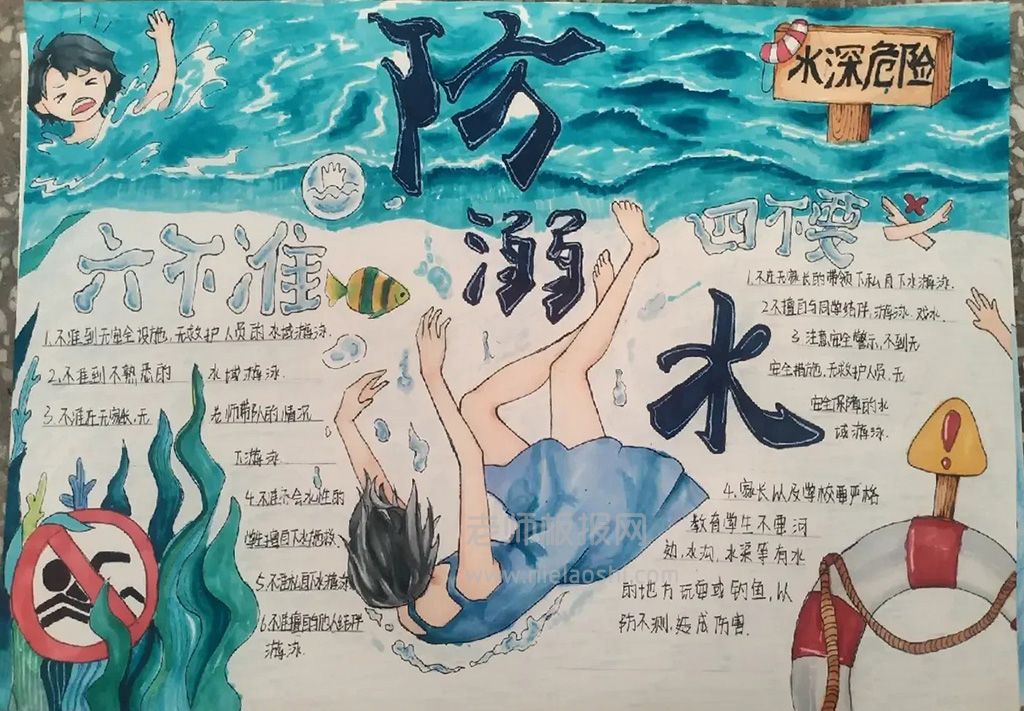 防
溺
水
水深危险
六不准
1.不准到无安全设施、无救护人员的水域游泳.
2.不准到不熟悉的水域游泳.
3.不准在无家长、无老师带队的情况
下游泳.
4.不准不会水性的
学生擅自下水施救.
5.不准私自下水游泳
6.不准擅自与他人结伴
游泳.
四不要
1.不在无家长的带领下私自下水游泳.
2.不擅自与同学结伴游泳、戏水.
3.注意安全警示,不到无
安全措施,无救护人员,无
安全保障的水
域游泳.
4.家长以及学校要严格
教育学生不要河
边,水沟,水渠等有水
的地方玩耍或钓鱼,以
防不测,造成伤害.
老师板报网